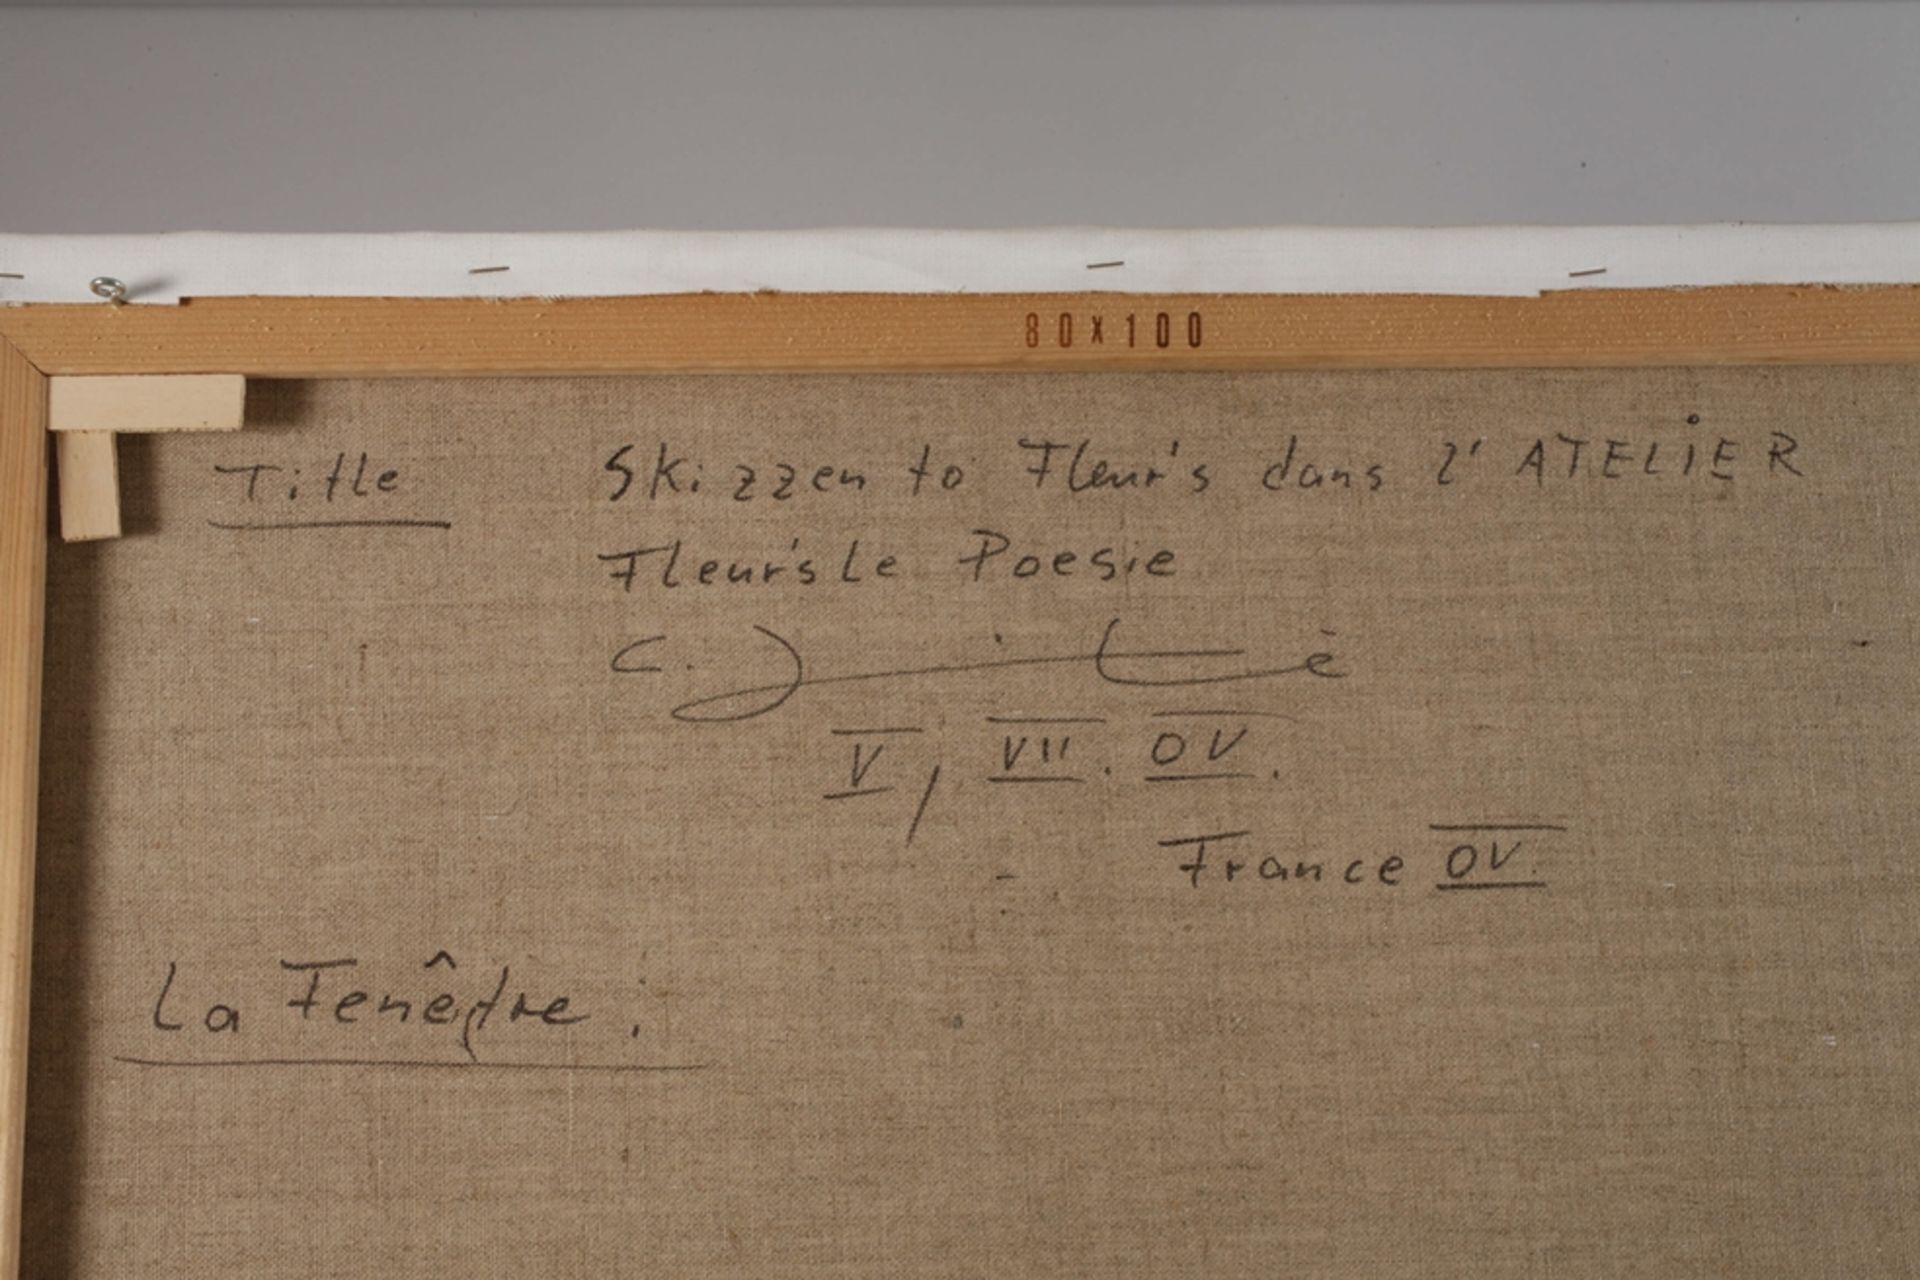 80x100
Title Skizzen to Fleur's dans l'ATELiER
Fleur'sLe Poesie
C.
V, VII. OV.
France OV.
La Fenêtre.